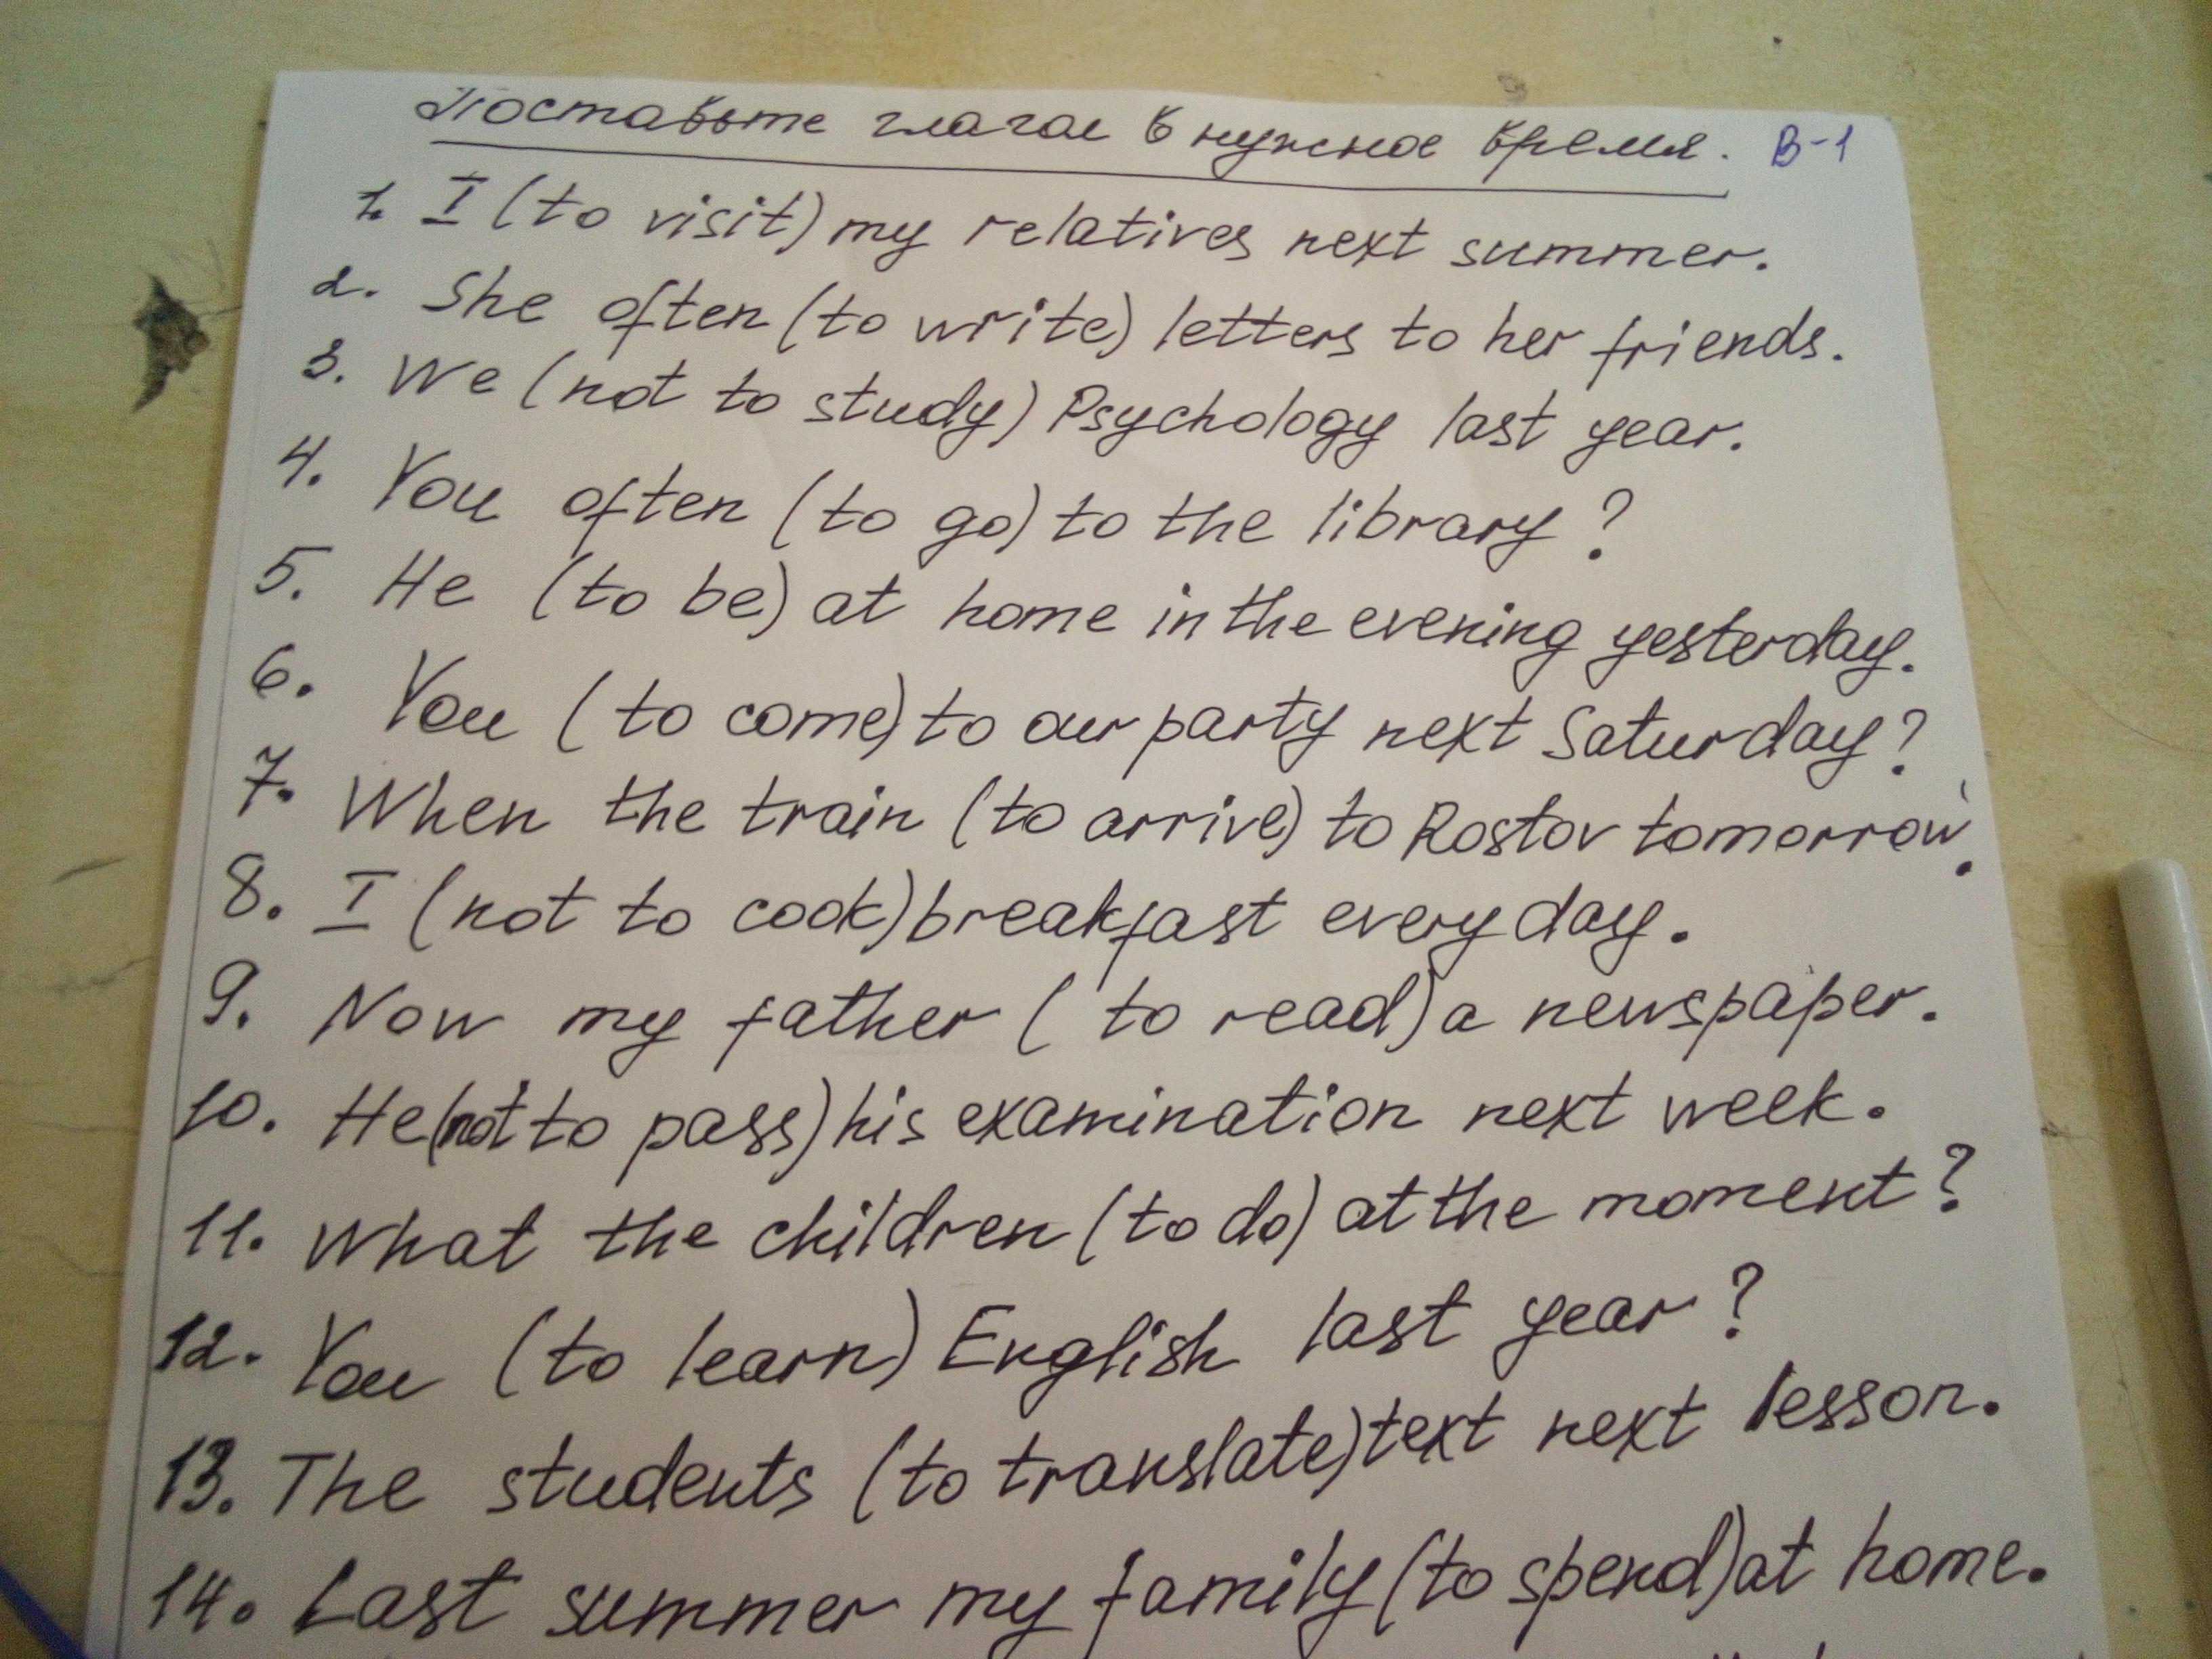 Поставьте глагол в нужное время. В-1
1. I (to visit) my relatives next summer.
2. She often (to write) letters to her friends.
3. We (not to study) Psychology last year.
4. You often (to go) to the library?
5. He (to be) at home in the evening yesterday.
6. You (to come) to our party next Saturday?
7. When the train (to arrive) to Rostov tomorrow?
8. I (not to cook) breakfast every day.
9. Now my father (to read) a newspaper.
10. He (not to pass) his examination next week.
11. What the children (to do) at the moment?
12. You (to learn) English last year?
13. The students (to translate) text next lesson.
14. Last summer my family (to spend) at home.